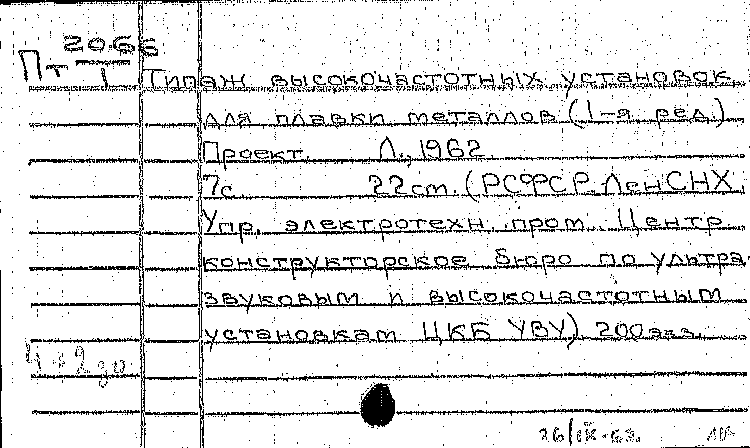 Пт 2066/1 Типаж высокочастотных установок
для плавки металлов (1-я ред.)
Проект. Л., 1962
7с. 22 см. (РСФСР. ЛенСНХ.
Упр. электротехн. пром. Центр.
конструкторское бюро по ультра-
звуковым и высокочастотным
установкам ЦКБ УВУ) 200 экз.
26/IX-62.